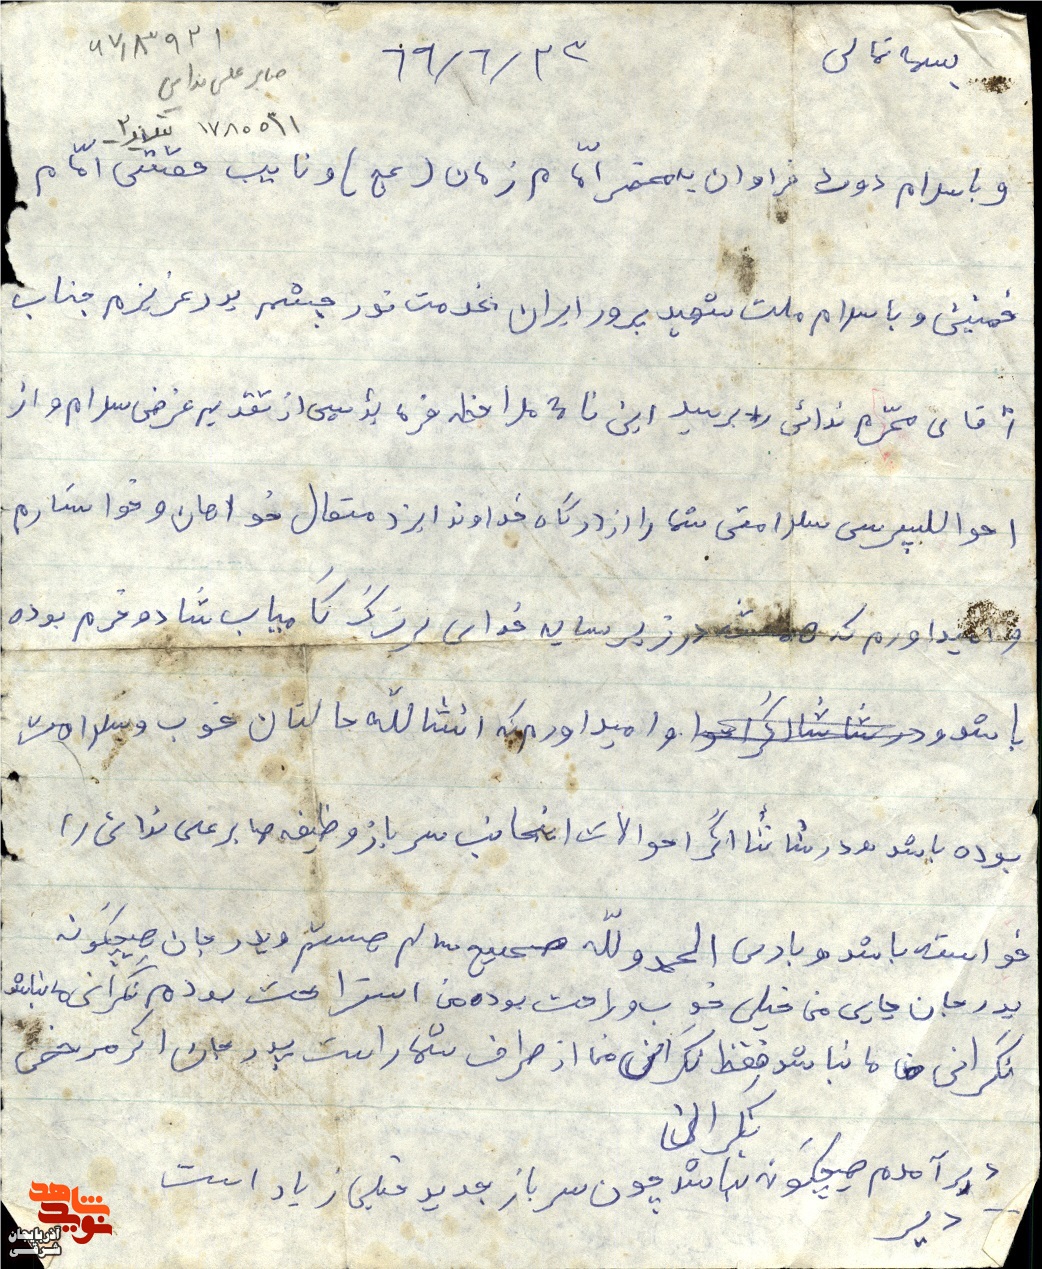 بسمه تعالی
۶۹/۶/۲۳
۶۷۸۳۹۲۱
صابر علی ندایی
۱۷۸۰۵۵۹۱
و با سلام درود فراوان به محضر امّام زمان (عج) و نایب حقیقی امّام
خمینی و با سلام ملت شهید پرور ایران خدمت نور چشم پدر عزیزم جناب
آقای محرّم ندائی برسید این نامه ملاحظه فرمایید پس از تقدیم عرض سلام و از
احوالپرسی سلامتی شما را از درگاه خداوند ایزد متعال خواهان و خواستارم
و امیداورم که همیشه در زیر سایه خدای بزرگ کامیاب شاد و خرم بوده
باشد و امیداورم که انشاالله حالتان خوب و سلامت
بوده باشد اگر احوالات اینجانب سرباز وظیفه صابر علی ندائی را
خواسته باشد الحمدوللّه صحیح سالم هستم و پدر جان هیچگونه
پدر جان جایی من خیلی خوب و راحت بوده من استراحت بودم نگرانی ما نباشد
نگرانی ما نباشد فقط نگرانی من از طرف شما راست پدر جان اگر مرخصی
نگرانی
دیر آمدم هیچگونه نباشد چون سرباز جدید خیلی زیاد است
دیر
نوید شاهد
آذربایجان
شرقی